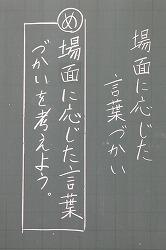 場面に応じた
言葉づかい
め
場面に応じた言葉
づかいを考えよう。